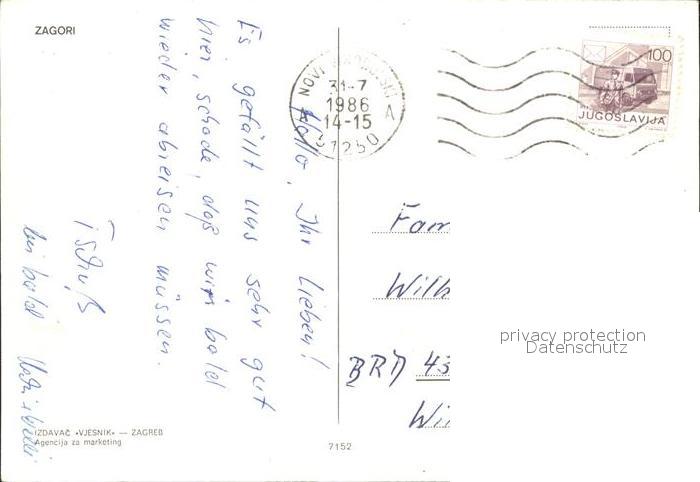 ZAGORI
Hallo, Ihr Lieben!
Es gefällt uns sehr gut
hier, schade, daß wir bald
wieder abreisen müssen.
Tschüß
bis bald
NOVI
31-7
1986
14-15
A
51250
100
JUGOSLAVIJA
Fam
Wilh
BRD 43
Wi
privacy protection
Datenschutz
IZDAVAČ «VJESNIK» — ZAGREB
Agencija za marketing
7152